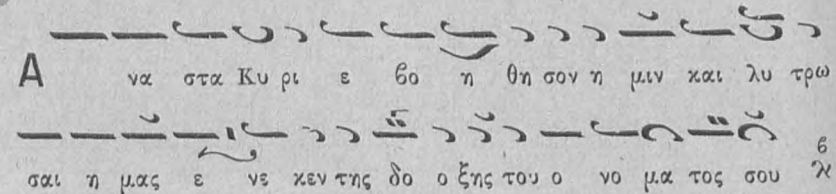 Α να στα Κυ ρι ε βο η θη σον η μιν και λυ τρω
σαι η μας ε νε κεν της δο ο ξης του ο νο μα τος σου